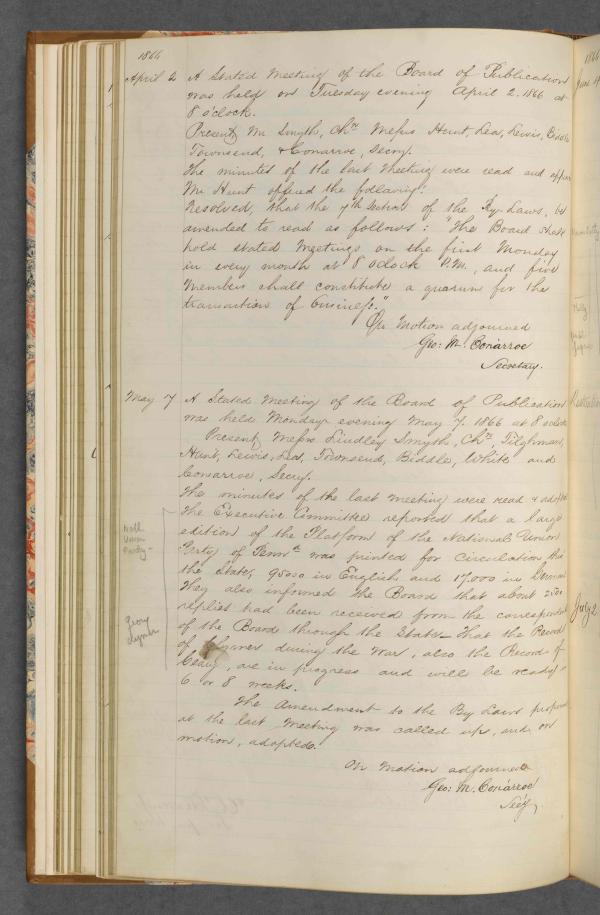 1866
April 2 A Stated Meeting of the Board of Publication
was held on Tuesday evening April 2. 1866 at
8 o'clock.
Present, Mr Smyth, Chn Messrs Hunt, Lea, Lewis, Biddle
Townsend, & Conarroe, Secry.
The minutes of the last Meeting were read and
Mr Hunt offered the following:
Resolved, that the 7th Section of the By-Laws, be
amended to read as follows: "The Board shall
hold stated Meetings on the first Monday
in every month at 8 oclock P.M., and five
Members shall constitute a quorum for the
transaction of business."
On Motion adjourned
Geo: M. Conarroe
Secretary.
May 7 A Stated Meeting of the Board of Publication
was held Monday evening May 7. 1866 at 8 oclock
Present, Messrs Lindley Smyth, Chn, Tilghman,
Hunt, Lewis, Lea, Townsend, Biddle, White and
Conarroe, Secry.
The minutes of the last meeting were read &
The Executive Committee reported that a large
edition of the Platform of the National Union
Party of Penna was printed for circulation
the State, 95000 in English and 17,000 in German
They also informed the Board that about
replies had been received from the
of the Board through the State. That the Record
of during the War, also the Record of
Geary, are in progress and will be ready
6 or 8 weeks.
The Amendment to the By Laws
at the last Meeting was called up, and on
motion, adopted.
On Motion adjourned
Geo: M. Conarroe
Secy
Natl
Union
Party -
Geary
Clymer
1866
June 4
July 2